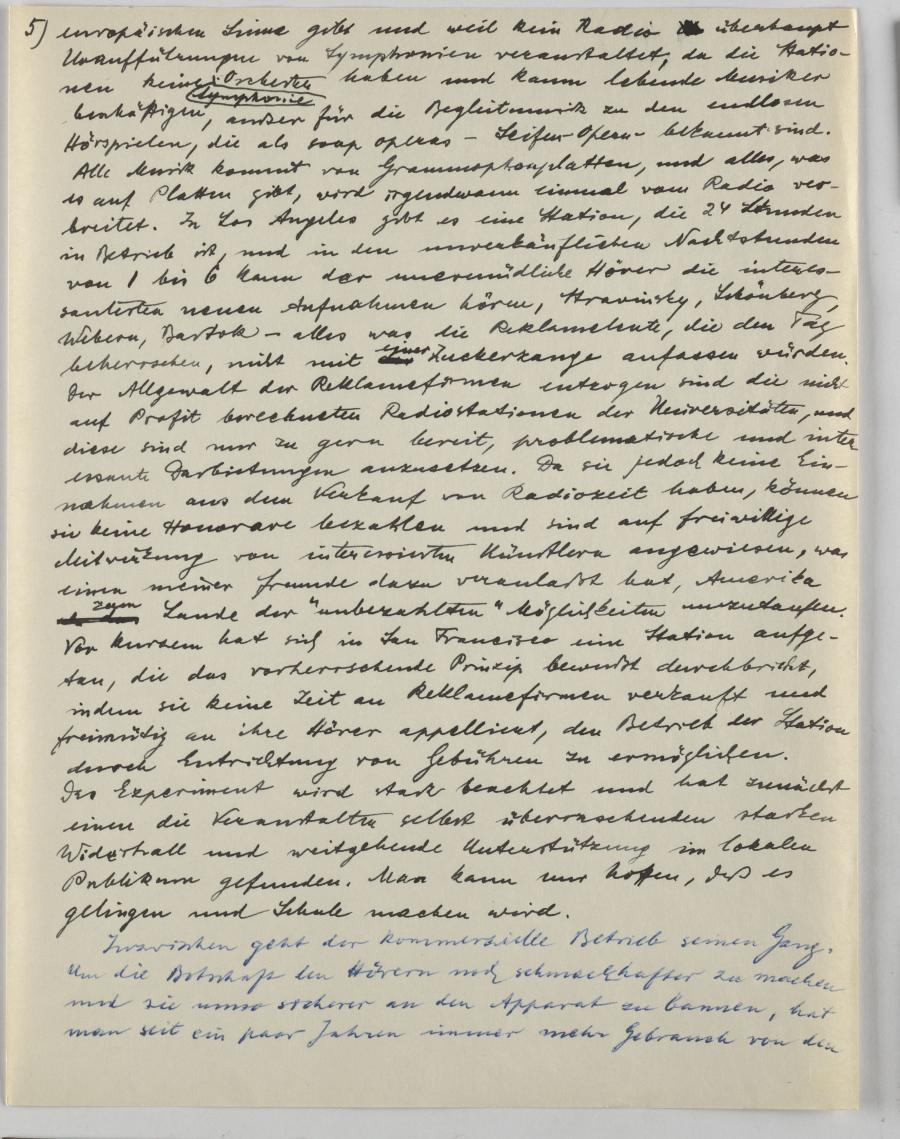 5) europäischen Sinne gibt und weil kein Radio überhaupt
Uraufführungen von Symphonien veranstaltet, da die Statio-
nen keine Orchester haben und kaum lebende Musiker
Symphonie
beschäftigen, ausser für die Begleitmusik zu den endlosen
Hörspielen, die als soap operas – Seifen-Opern – bekannt sind.
Alle Musik kommt von Grammophonplatten, und alles, was
es auf Platten gibt, wird irgendwann einmal vom Radio ver-
breitet. In Los Angeles gibt es eine Station, die 24 Stunden
in Betrieb ist, und in den unverkäuflichen Nachtstunden
von 1 bis 6 kann der unermüdliche Hörer die interes-
santesten neuen Aufnahmen hören, Stravinsky, Schönberg,
Webern, Bartok – alles was die Reklameleute, die den Tag
beherrschen, nicht mit einer Zuckerzange anfassen würden.
Der Allgewalt der Reklamefirmen entzogen sind die nicht
auf Profit berechneten Radiostationen der Universitäten, und
diese sind nur zu gern bereit, problematische und inter
essante Darbietungen anzusetzen. Da sie jedoch keine Ein-
nahmen aus dem Verkauf von Radiozeit haben, können
sie keine Honorare bezahlen und sind auf freiwillige
Mitwirkung von interessierten Künstlern angewiesen, was
einen meiner Freunde dazu veranlasst hat, Amerika
zum Lande der "unbezahlten" Möglichkeiten umzutaufen.
Vor kurzem hat sich in San Francisco eine Station aufge-
tan, die das vorherrschende Prinzip bewusst durchbricht,
indem sie keine Zeit an Reklamefirmen verkauft und
freimütig an ihre Hörer appelliert, den Betrieb der Station
durch Entrichtung von Gebühren zu ermöglichen.
Das Experiment wird stark beachtet und hat zunächst
einen die Veranstalter selbst überraschenden starken
Widerhall und weitgehende Unterstützung im lokalen
Publikum gefunden. Man kann nur hoffen, dass es
gelingen und Schule machen wird.
Inzwischen geht der kommerzielle Betrieb seinen Gang.
Um die Botschaft den Hörern noch schmackhafter zu machen
und sie umso sicherer an den Apparat zu bannen, hat
man seit ein paar Jahren immer mehr Gebrauch von den